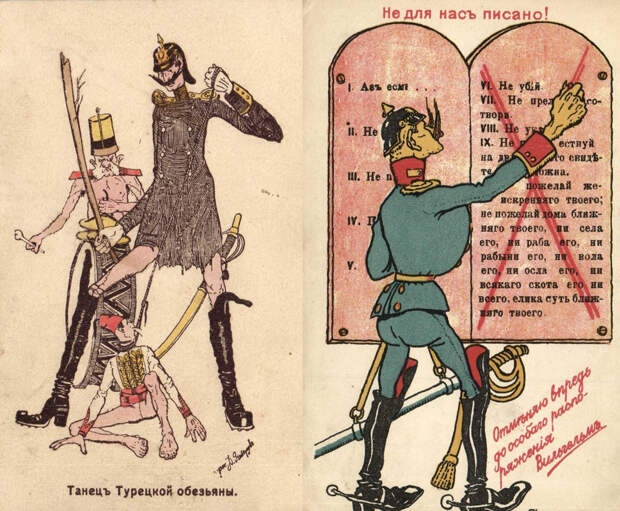 Танецъ Турецкой обезьяны.
Не для насъ писано!
I. Азъ есмі . . .
II. Не
III. Не
IV.
V.
VI. Не убій.
VII. Не
твори.
VIII. Не
IX. Не
на свидѣ-
пожелай же-
искренняго твоего;
не пожелай дома ближ-
няго твоего, ни села
его, ни раба его, ни
рабыни его, ни вола
его, ни осла его, ни
всякаго скота его ни
всего, елика суть ближ-
няго твоего.
Отмѣняю впредь
до особаго распо-
ряженія
Вильгельмъ